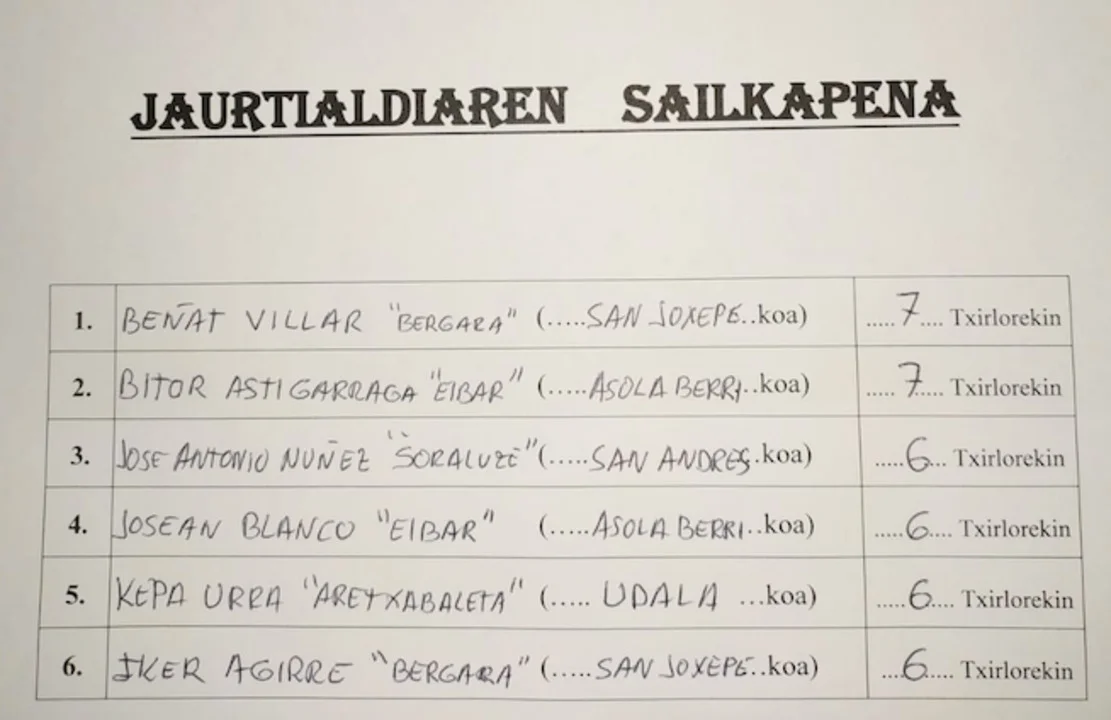 JAURTIALDIAREN SAILKAPENA
1. BEÑAT VILLAR "BERGARA" (.....SAN JOXEPE..koa) .....7.... Txirlorekin
2. BITOR ASTIGARRAGA "EIBAR" (.....ASOLA BERRI..koa) .....7..... Txirlorekin
3. JOSE ANTONIO NUÑEZ "SORALUZE" (.....SAN ANDRES.koa) .....6... Txirlorekin
4. JOSEAN BLANCO "EIBAR" (.....ASOLA BERRI..koa) .....6.... Txirlorekin
5. KEPA URRA "ARETXABALETA" (..... UDALA ...koa) .....6.... Txirlorekin
6. IKER AGIRRE "BERGARA" (.....SAN JOXEPE..koa) ....6..... Txirlorekin